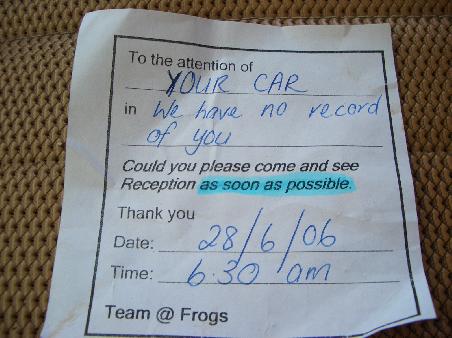 To the attention of
YOUR CAR
in We have no record
of you
Could you please come and see
Reception as soon as possible.
Thank you
Date: 28/6/06
Time: 6.30 am
Team @ Frogs